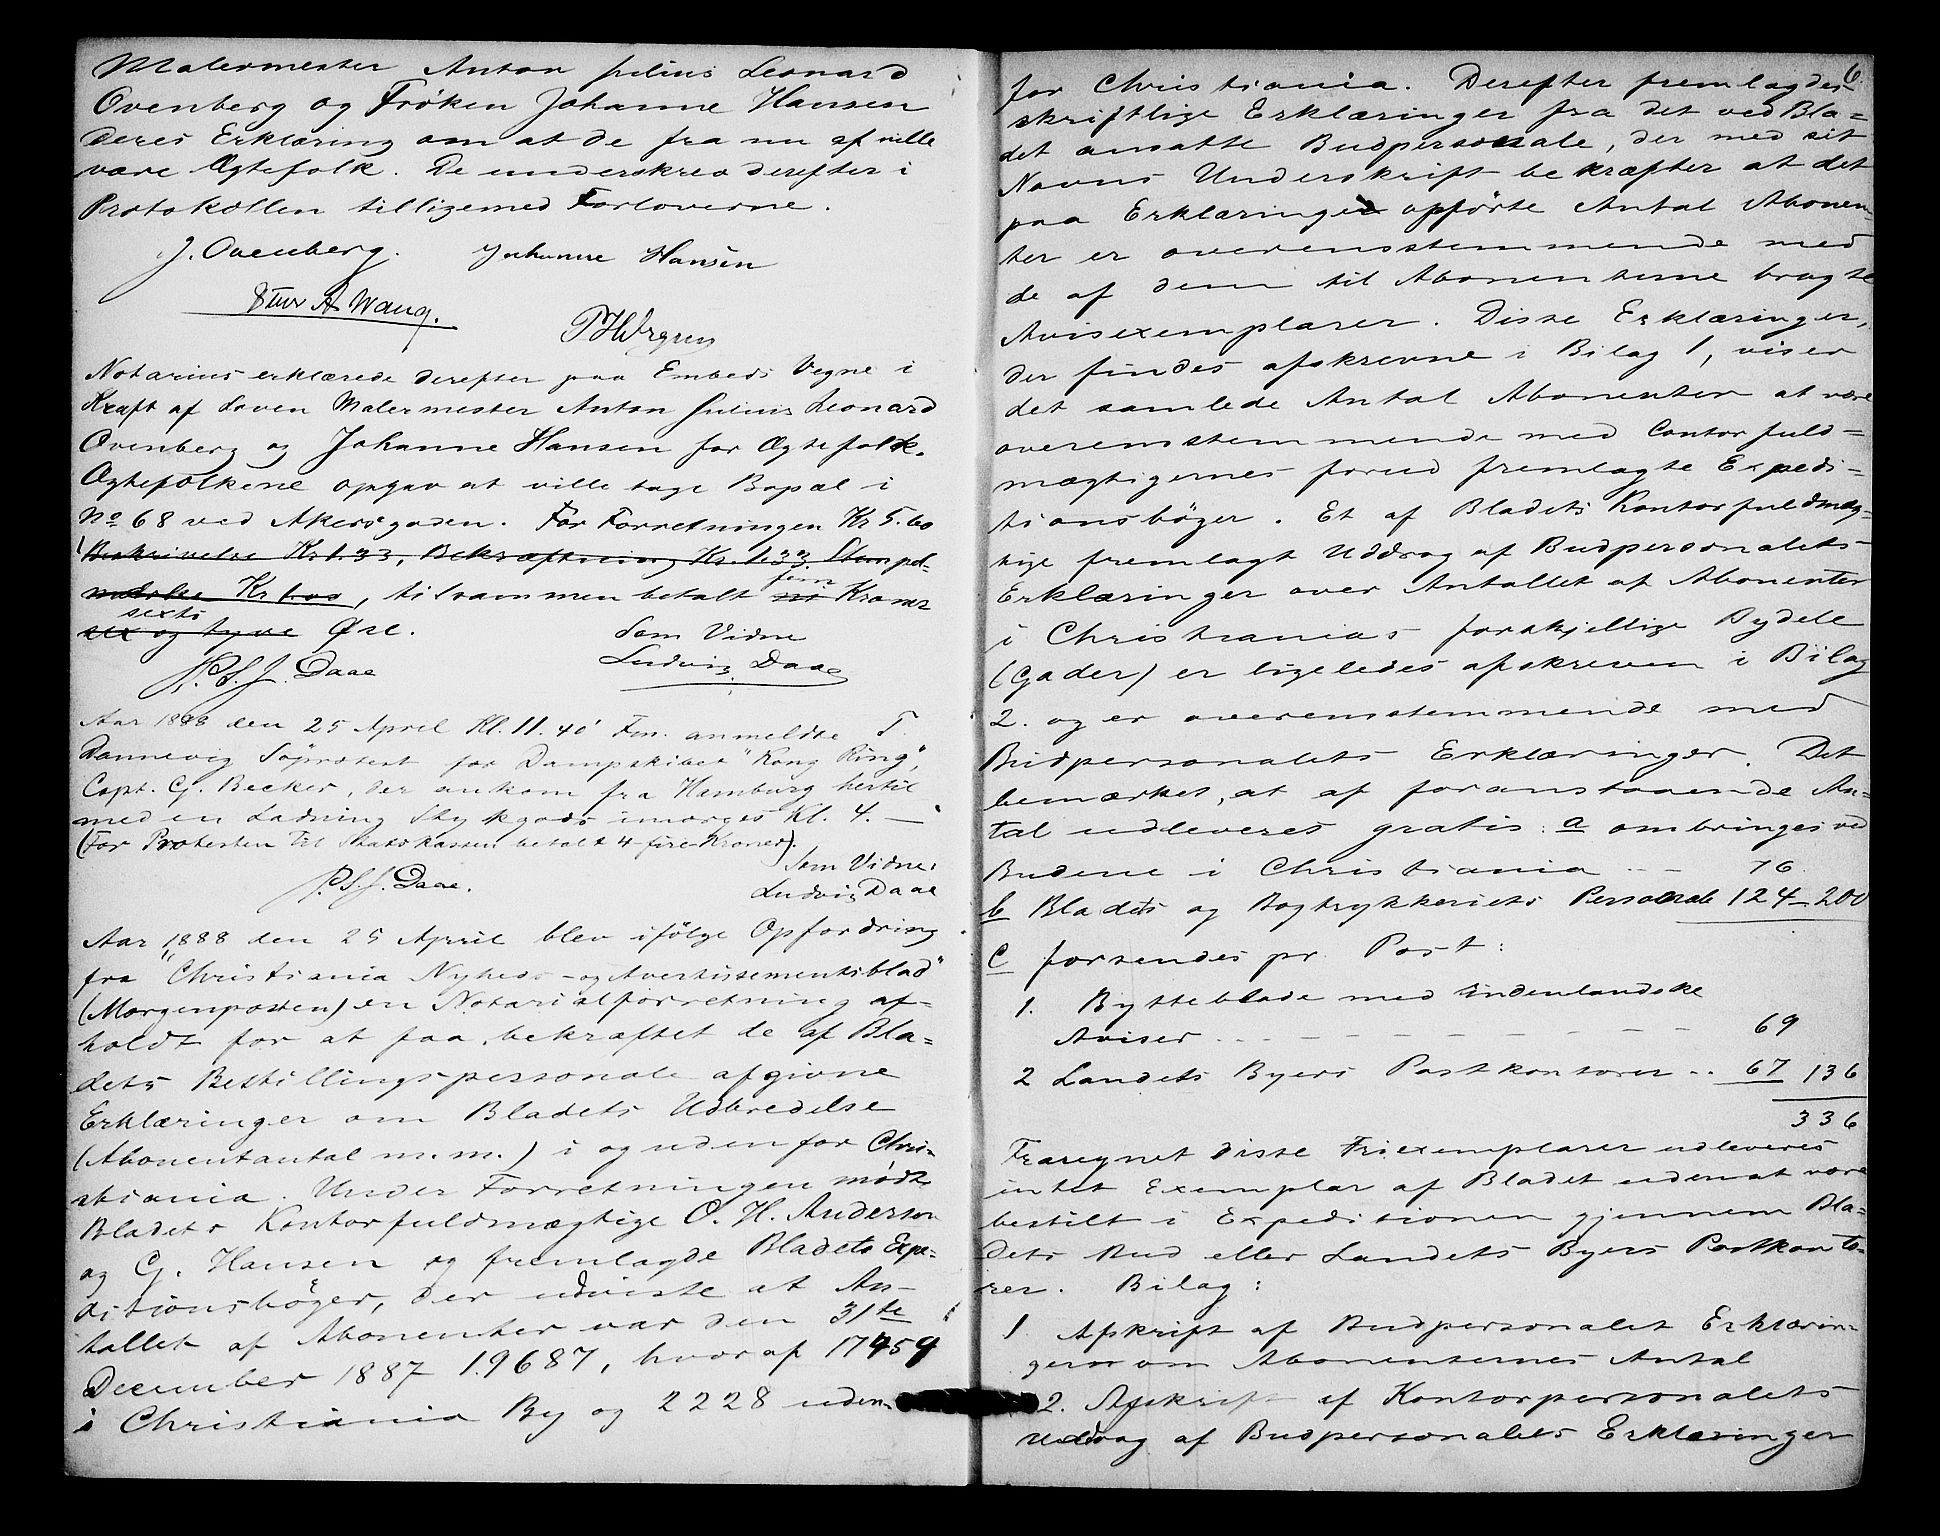 Malermester Anton Julius Leonard
Ovenberg og Frøken Johanne Hansen
deres Erklæring om at de fra nu af ville
være Ægtefolk. De underskrev derefter i
Protokollen tilligemed Forloverne.
J. Ovenberg. Johanne Hansen
A Wang.
Notarius erklærede derefter paa Embeds Vegne i
Kraft af Loven Malermester Anton Julius Leonard
Ovenberg og Johanne Hansen for Ægtefolk.
Ægtefolkene opgav at ville tage Bopæl i
No 68 ved Akersgaden. For Forretningen Kr 5.60
Beskrivelse Kr 1.33, Bekræftning Kr. 1.33 Stempel-
Kr 1.00, tilsammen betalt fem Kroner
sexti
sex og tyve Øre. Som Vidne
P.S.J. Daae Ludvig Daae
Aar 1888 den 25 April Kl. 11.40' Fm. anmeldte T.
Dannevig Söprotest for Dampskibet "Kong Ring",
Capt. G. Becker, der ankom fra Hamburg hertil
med en Ladning Stykgods imorges Kl. 4. —
(For Protesten til Statskassen betalt 4 - fire Kroner).
Som Vidne:
P.S.J. Daae. Ludvig Daae
Aar 1888 den 25 April blev ifölge Opfordring
fra "Christiania Nyheds- og Avertissementsblad"
(Morgenposten) en Notarialforretning af-
holdt for at faa bekræftet de af Bla=
dets Bestillingspersonale afgivne
Erklæringer om Bladets Udbredelse
(Abonentantal m.m.) i og udenfor Chri-
stiania. Under Forretningen mødte
Bladets Kontorfuldmægtige O. H. Anderson
og G. Hansen og fremlagde Bladets Expe=
ditionsbøger, der udviste at An-
tallet af Abonenter var den 31te
December 1887 19687, hvoraf 17459
i Christiania By og 2228 uden-
6.
for Christiania. Derefter fremlagdes
skriftlige Erklæringer fra det ved Bla=
det ansatte Budpersonale, der med sit
Navns Underskrift bekræfter at det
paa Erklæringen opførte Antal Abonen-
ter er overensstemmende med
de af dem til Abonenterne bragte
Avisexemplarer. Disse Erklæringer,
der findes afskrevne i Bilag 1, viser
det samlede Antal Abonenter at være
overensstemmende med Contorfuld=
mægtigernes forud fremlagte Expedi=
tionsbøger. Et af Bladets Kontorfuldmæg-
tige fremlagt Uddrag af Budpersonalets
Erklæringer over Antallet af Abonenter
i Christianias forskjellige Bydele
(Gader) er ligeledes afskreven i Bilag
2. og er overensstemmende med
Budpersonalets Erklæringer. Det
bemærkes, at af foranstaaende An=
tal udleveres gratis: a ombringes ved
Budene i Christiania - - 76
b Bladets og Bogtrykkeriets Personale 124 - 200
c forsendes pr. Post:
1. Bytteblade med indenlandske
Aviser . . - - - - - - - - 69
2 Landets Byers Postkontorer . . 67 136
336
Fraregnet disse Friexemplarer udleveres
intet Exemplar af Bladet udenat være
bestilt i Expeditionen gjennem Bla=
dets Bud eller Landets Byers Postkonto-
rer. Bilag:
1. Afskrift af Budpersonalet Erklærin-
ger om Abonenternes Antal
2. Afskrift af Kontorpersonalets
Uddrag af Budpersonalets Erklæringer